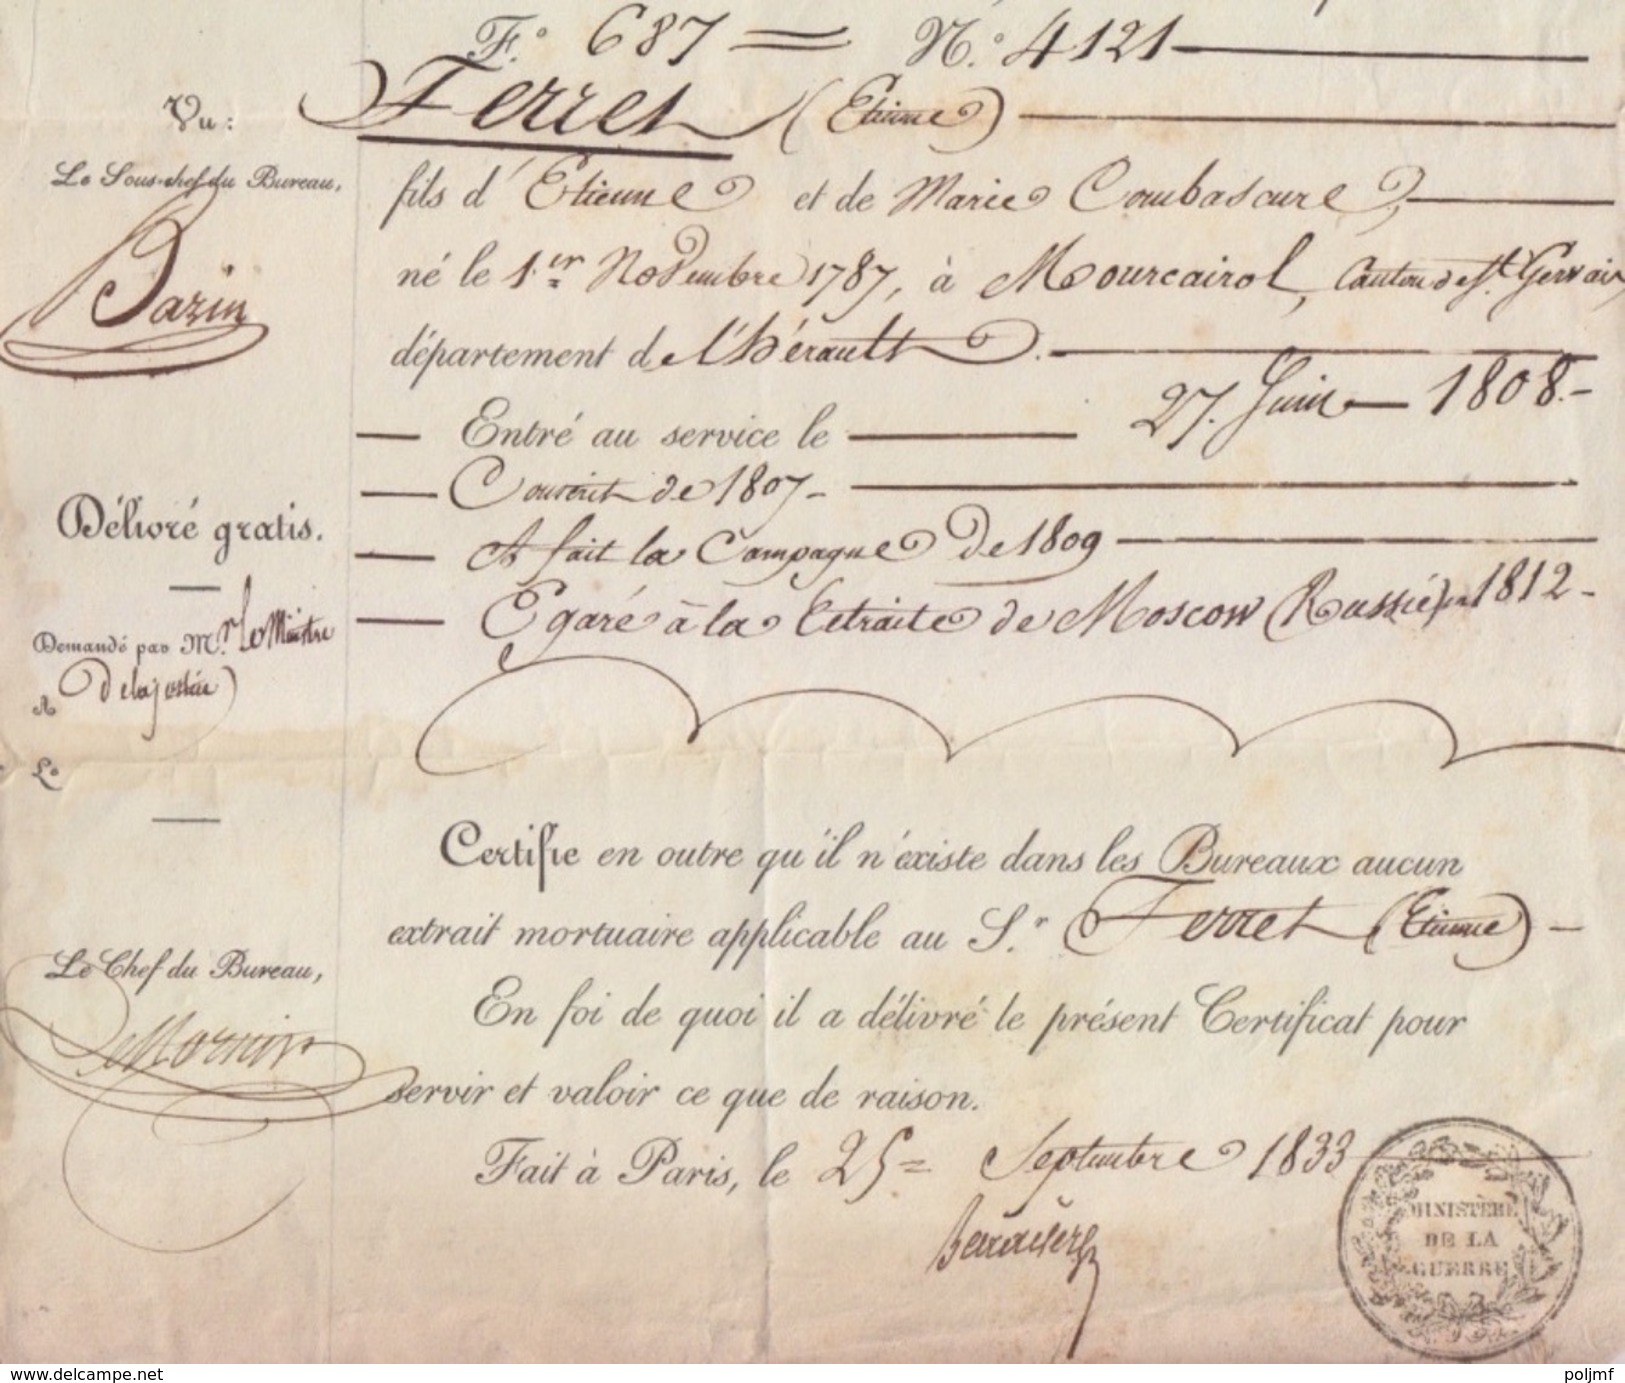 F.° 687 = N.° 4121
Ferret (Etienne)
fils d'Etienne et de Marie Combascure,
né le 1.er Novembre 1787, à Mourcairol, Canton de St. Gervais,
département de l'hérault.
Entré au service le 27. Juin 1808.-
Conscrit de 1807-
A fait la Campagne De 1809
Egaré à la Retraite de Moscow (Russie) en 1812-
Certifie en outre qu'il n'existe dans les Bureaux aucun
extrait mortuaire applicable au S.r Ferret (Etienne)
En foi de quoi il a délivré le présent Certificat pour
servir et valoir ce que de raison.
Fait à Paris, le 25 = Septembre 1833
Vu:
Le Sous-chef du Bureau,
Bazin
Délivré gratis.
Demandé par Mr. le Ministre
De la justice
A
Le
Le Chef du Bureau,
MINISTÈRE
DE LA
GUERRE
delcampe.net
poljmf